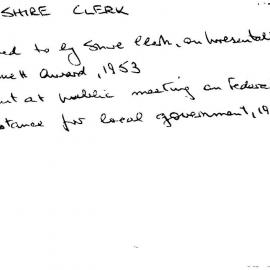 SHIRE CLERK
ed to by Shire Clerk, on presentati
nett Award, 1953
nt at public meeting on Federa
stance for local government, 19